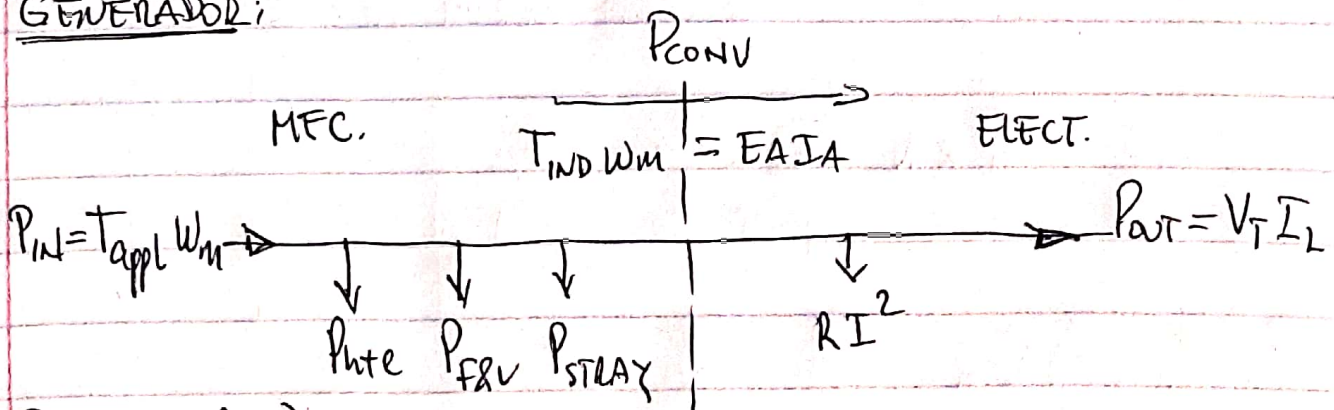 GENERADOR:
PCONV
MEC.
TIND Wm = EAIA
ELECT.
PIN = Tappl Wm
POUT = VT IL
Ph+e PF&V PSTRAY
RI²